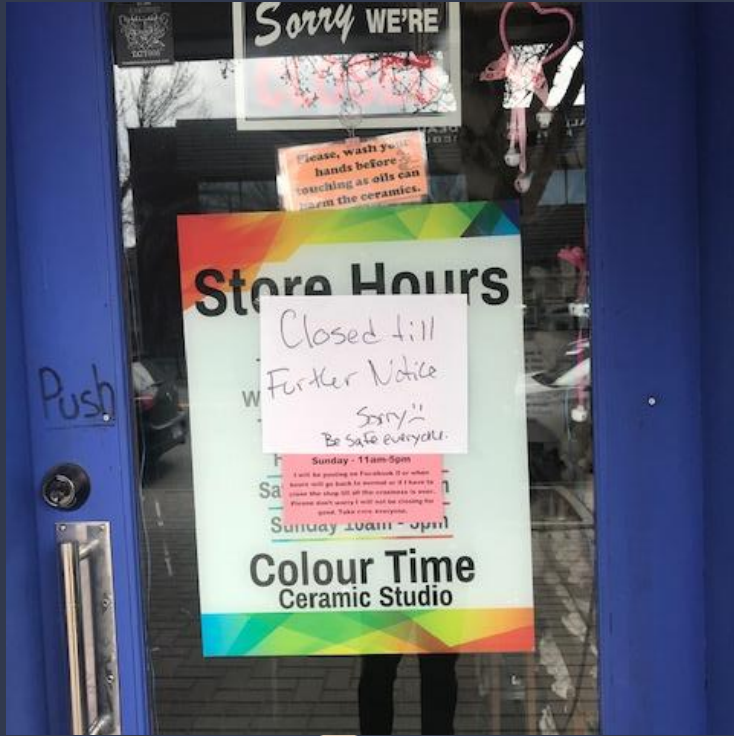 Sorry WE'RE
CLOSED
Please, wash your
hands before
touching as oils can
harm the ceramics.
Store Hours
Closed till
Further Notice
Sorry :(
Be Safe everyone.
Push
Sunday - 11am-5pm
I will be posting on Facebook if or when
hours will go back to normal or if I have to
close the shop till all the craziness is over.
Please don't worry I will not be closing for
good. Take care everyone.
Sunday 10am - 5pm
Colour Time
Ceramic Studio